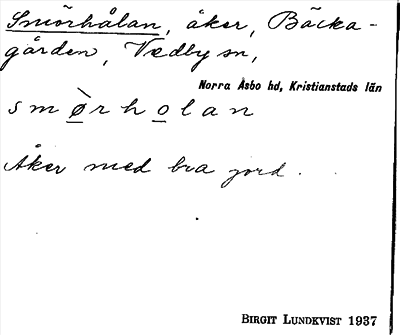 Smörhålan, åker, Bäcka-
gården, Vedby sn,
Norra Åsbo hd, Kristianstads län
smø̀rholan
Åker med bra jord.
BIRGIT LUNDKVIST 1937